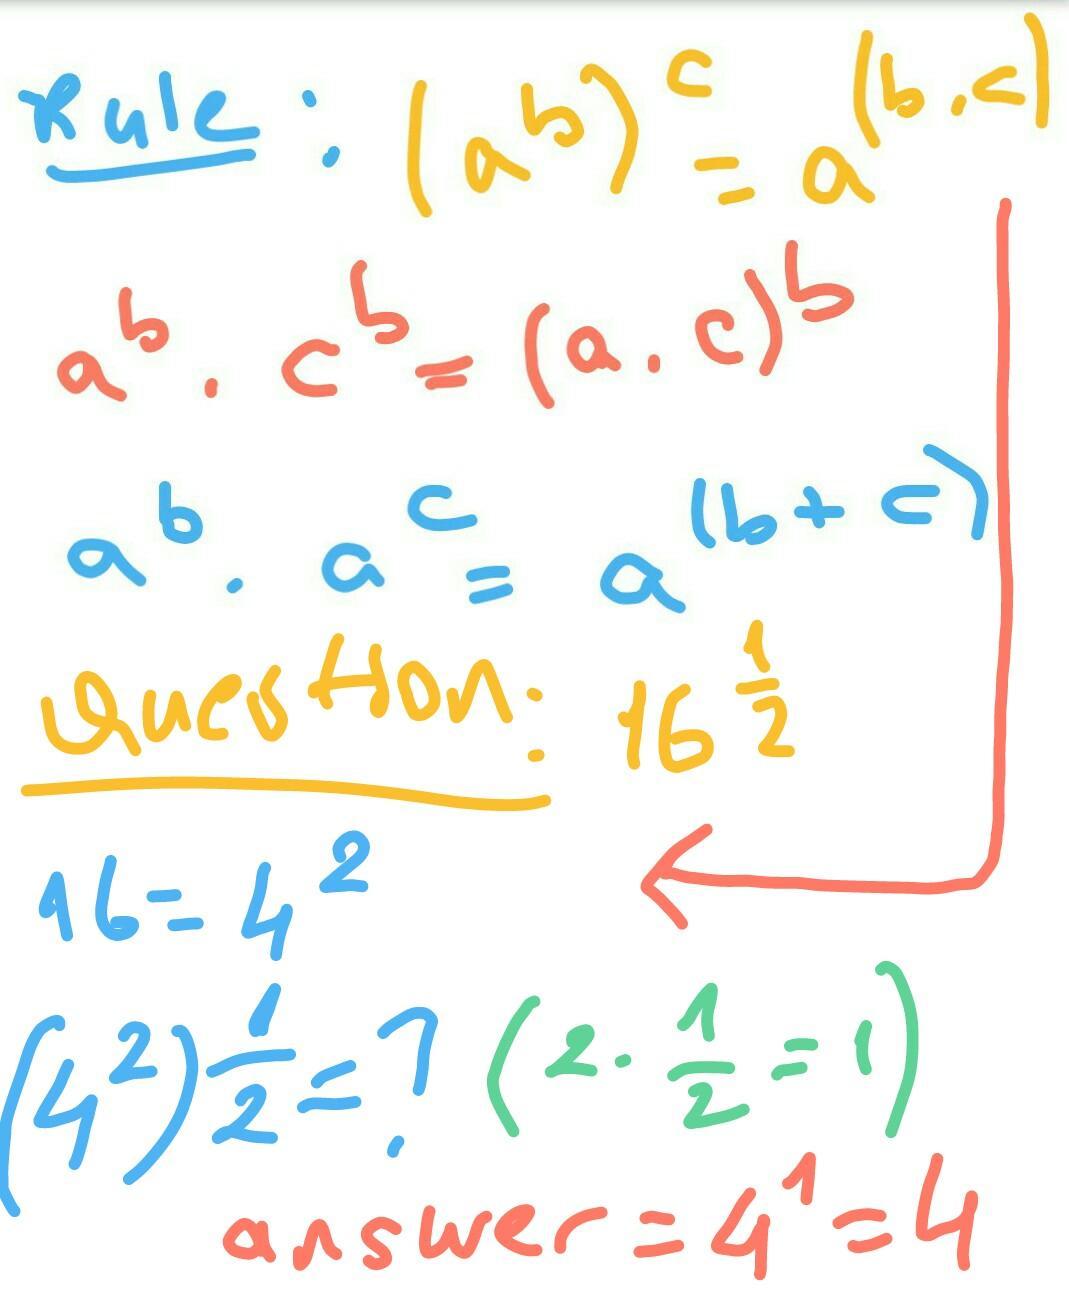 Rule : (a^b)^c = a^(b.c)
a^b . c^b = (a.c)^b
a^b . a^c = a^(b+c)
Question: 16^1/2
16=4^2
(4^2)^1/2=? (2.1/2=1)
answer=4^1=4